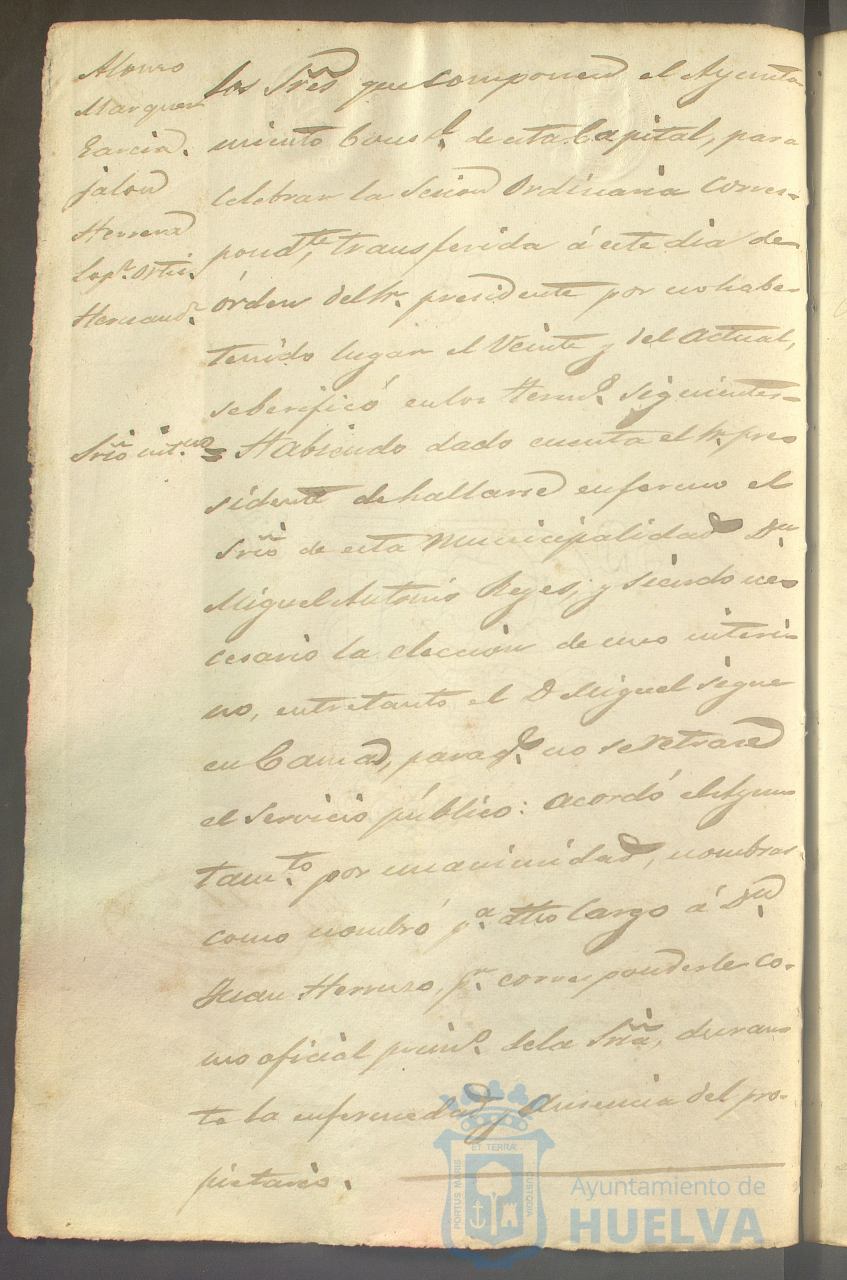 Alonso
Marquez
Garcia.
Jalon
Herrera
Lopz. Ortiz.
Hernandz.
Srio int.no
los Sres que componen el Ayunta
miento Const.l de esta Capital, para
celebrar la Sesion Ordinaria Corres-
pondte, transferida á este dia de
órden del Sr. presidente por no haber
tenido lugar el Veinte y del actual,
se berificó en los term.s siguientes-
= Habiendo dado cuenta el Sr. pre
sidente de hallarse enfermo el
Srio de esta Municipalidad Dn
Miguel Antonio Reyes, y siendo ne
cesario la eleccion de uno interi-
no, entretanto el D Miguel sigue
en Cama, para q.e no se retrase
el servicio público: acordó el Ayun
tam.to por unanimidad, nombrar
como nombró p.a dho Cargo á D.n
Juan Herruzo, p.r corresponderle co-
mo oficial prim.o de la Sria, duran
te la enfermedad y Ausencia del pro-
pietario.
PORTUS MARIS
ET TERRÆ
CUSTODIA
Ayuntamiento de
HUELVA